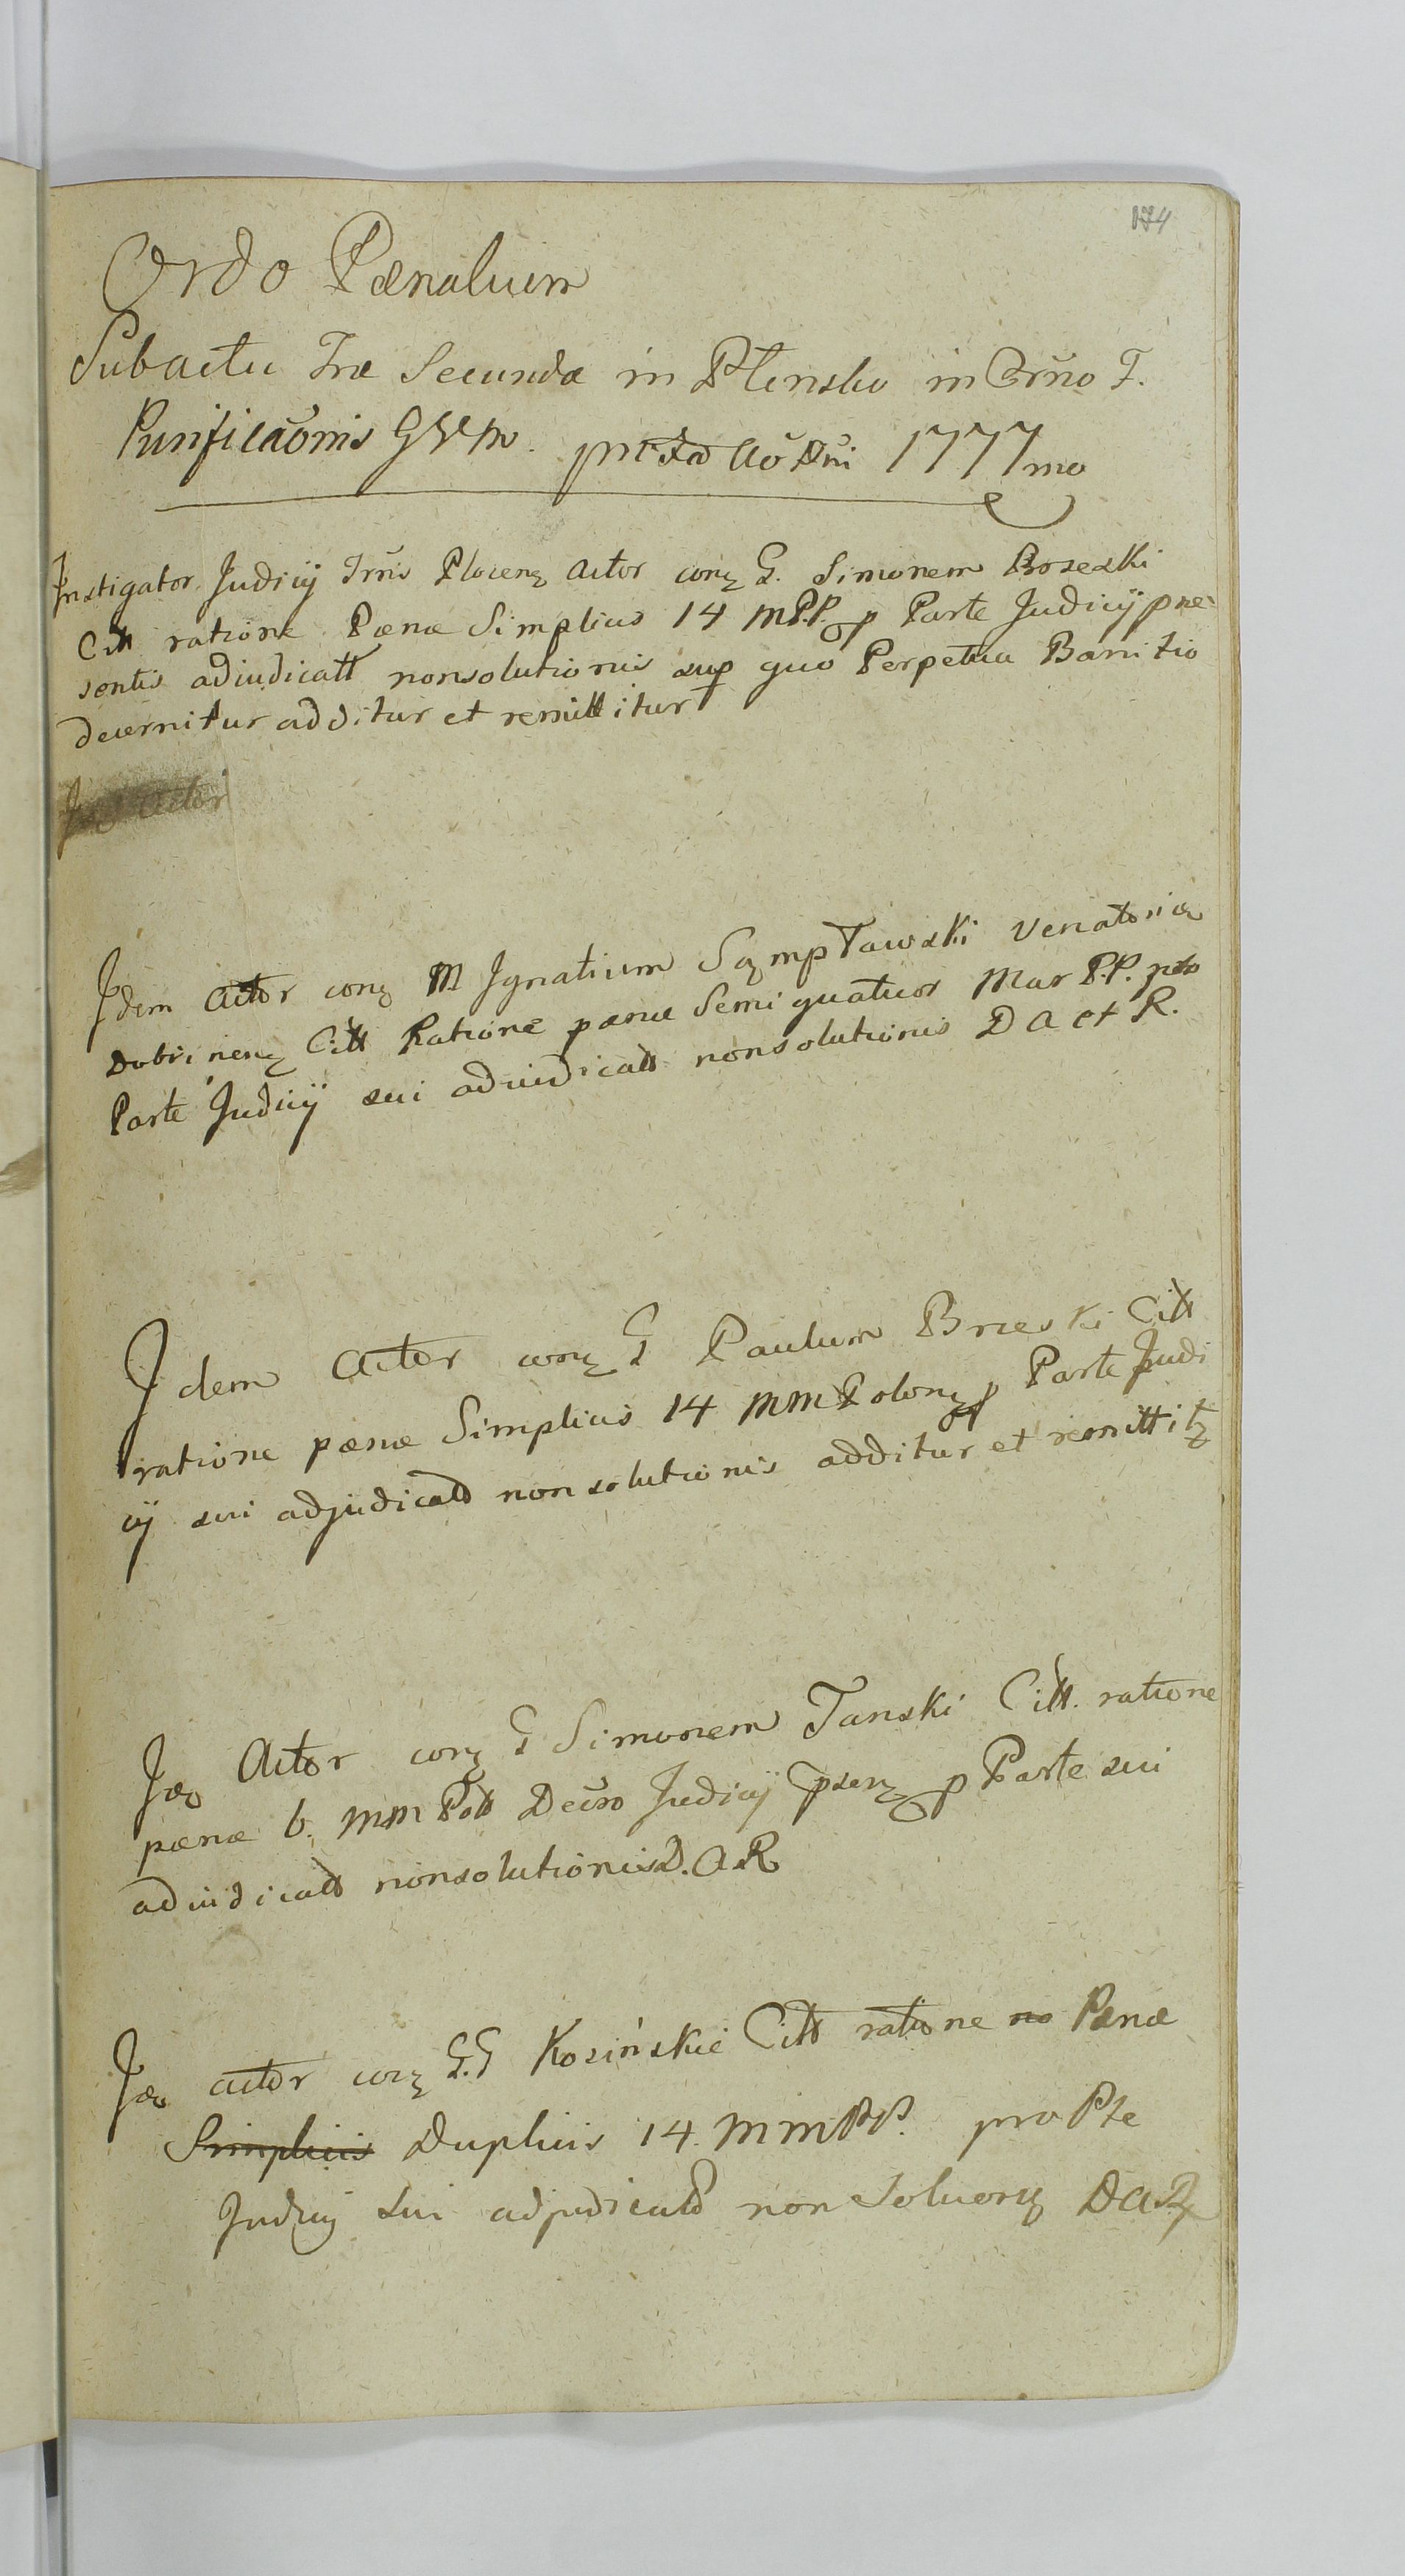 174
Ordo Pænalium
Subactu Træ Secunda in Płinsko in Crňo F.
Purificaõnis GVM. pñtæ Aõ Dñi 1777mo
Instigator Judicij Trñs Plocenꝫ Actor conꝫ G. Simonem Brzeski
Citt ratione Pænæ Simplicis 14 MPP. p Parte Judicij præ-
sentis adiudicatt nonsolutionis sup quo Perpetua Banitio
decernitur additur et remittitur
Jdo Actor
Idem Actor conꝫ M Ignatium Sąmpławski Venatoriæ
Dobrinenꝫ Citt Ratione pænæ Semi quatuor Mar P.P. pro
Parte Judicij sui adiudicatt nonsolutionis D A et R.
Idem Actor conꝫ G Paulum Brzeski Citt
ratione pænæ Simplicis 14 MM Polonꝫ p Parte Judi
cij sui adjudicatt nonsolutionis additur et remittitꝫ
Jdo Actor conꝫ G Simonem Tanski Citt. ratione
pænæ 6. MM Poll Decro Judicij psenꝫ p Parte sui
adiudicatt nonsolutionis D. A R
Jdo actor conꝫ G.G Kosińskie Citt ratione no Pænæ
Simplicis Duplicis 14. MMPP. pro Pte
Judicij sui adjudicatt non Soluonꝫ DAR